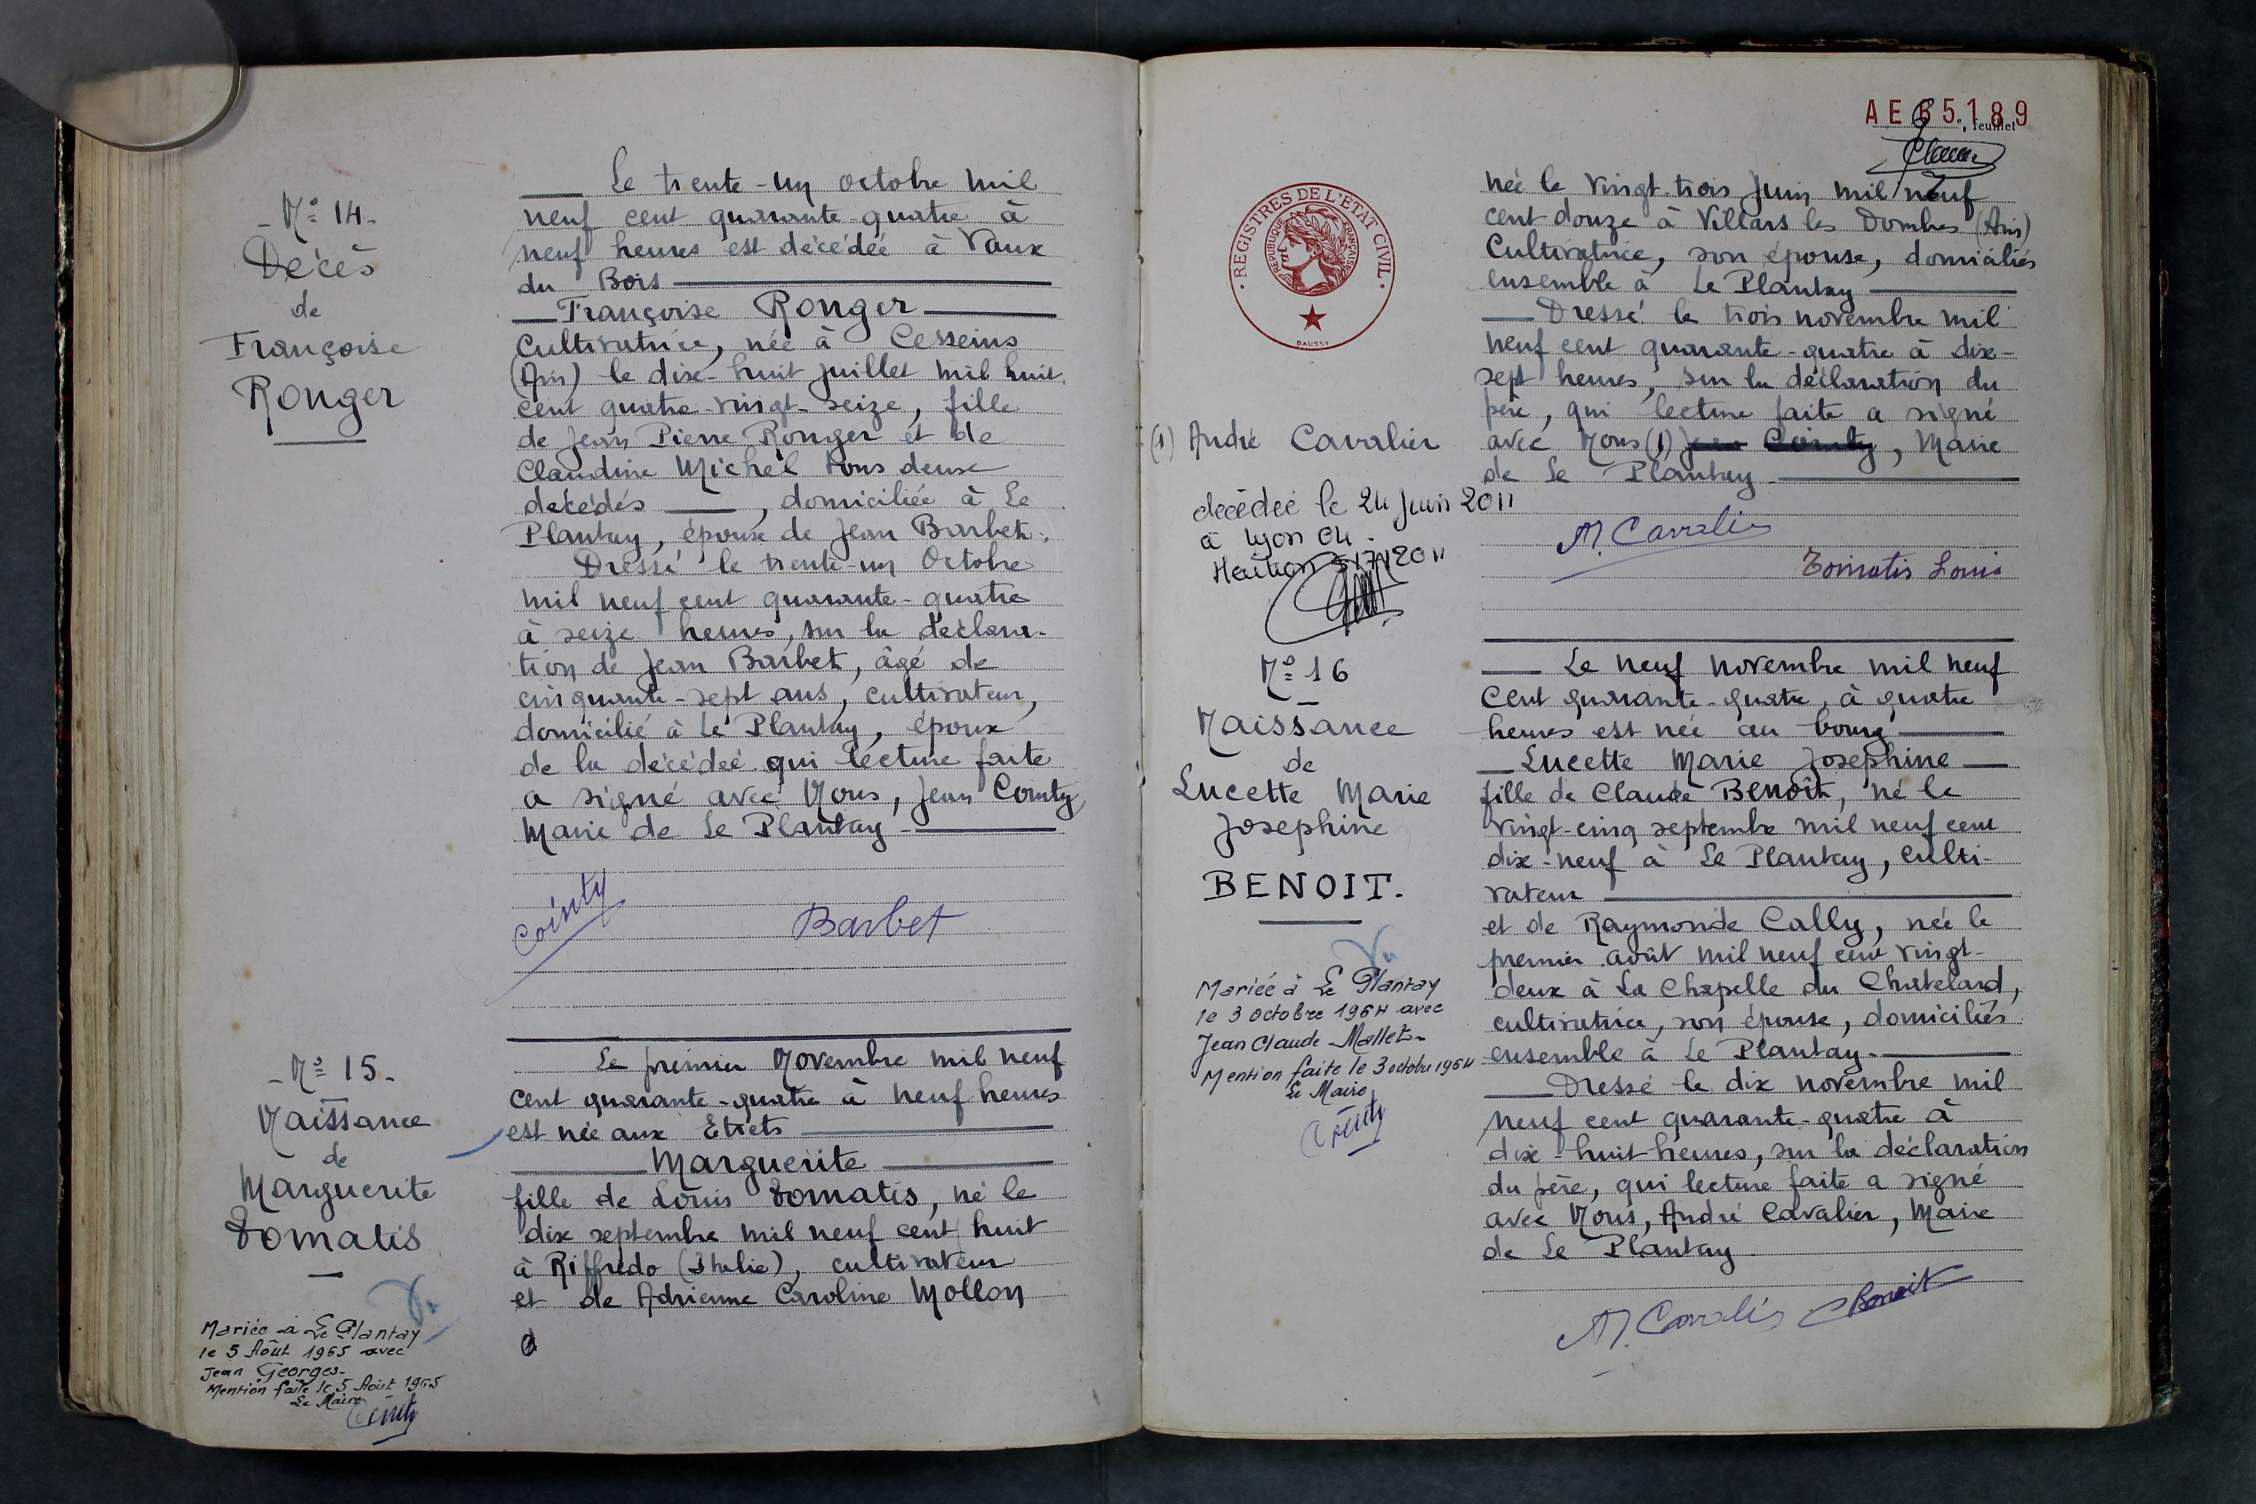 - N° 14 -
Décès
de
Françoise
Ronger
Le trente-un octobre mil
neuf cent quarante-quatre à
neuf heures est décédée à Vaux
du Bois
Françoise Ronger
cultivatrice, née à Cesseins
(Ain) le dix-huit juillet mil huit
cent quatre-vingt-seize, fille
de Jean Pierre Ronger et de
Claudine Michel tous deux
décédés, domiciliée à Le
Plantay, épouse de Jean Barbet.
Dressé le trente-un Octobre
mil neuf cent quarante-quatre
à seize heures, sur la déclara-
tion de Jean Barbet, âgé de
cinquante-sept ans, cultivateur,
domicilié à Le Plantay, époux
de la décédée qui lecture faite
a signé avec Nous, Jean Cointy
Maire de Le Plantay
Cointy
Barbet
- N° 15 -
Naissance
de
Marguerite
Tomatis
Vu
Mariée à Le Plantay
le 5 Août 1965 avec
Jean Georges-
Mention faite le 5 Août 1965
Le Maire
Cointy
Le premier Novembre mil neuf
cent quarante-quatre à neuf heures
est née aux Etrets
Marguerite
fille de Louis Tomatis, né le
dix septembre mil neuf cent huit
à Riffredo (Italie), cultivateur
et de Adrienne Caroline Mollon
AE 65189
6
e, feuillet
REGISTRES DE L'ETAT CIVIL
REPUBLIQUE FRANÇAISE
DAUSSY
née le vingt-trois Juin mil neuf
cent douze à Villars les Dombes (Ain)
Cultivatrice, son épouse, domiciliés
ensemble à Le Plantay
Dressé le trois novembre mil
neuf cent quarante-quatre à dix-
sept heures, sur la déclaration du
père, qui lecture faite a signé
avec Nous (1) Jean Cointy, Maire
de Le Plantay
(1) André Cavalier
décédée le 24 Juin 2011
à Lyon 04.
Mention 5/7/2011
A. Cavalier
Tomatis Louis
N° 16
Naissance
de
Lucette Marie
Josephine
BENOIT.
Vu
Mariée à Le Plantay
le 3 octobre 1964 avec
Jean Claude Mallet-
Mention faite le 3 octobre 1964
Le Maire
Cointy
Le neuf novembre mil neuf
cent quarante-quatre, à quatre
heures est née au bourg
Lucette Marie Josephine
fille de Claude Benoît, né le
vingt-cinq septembre mil neuf cent
dix-neuf à Le Plantay, culti-
vateur
et de Raymonde Cally, née le
premier août mil neuf cent vingt-
deux à La Chapelle du Chatelard,
cultivatrice, son épouse, domiciliés
ensemble à Le Plantay.
Dressé le dix novembre mil
neuf cent quarante-quatre à
dix-huit heures, sur la déclaration
du père, qui lecture faite a signé
avec Nous, André Cavalier, Maire
de Le Plantay
A. Cavalier
Benoit